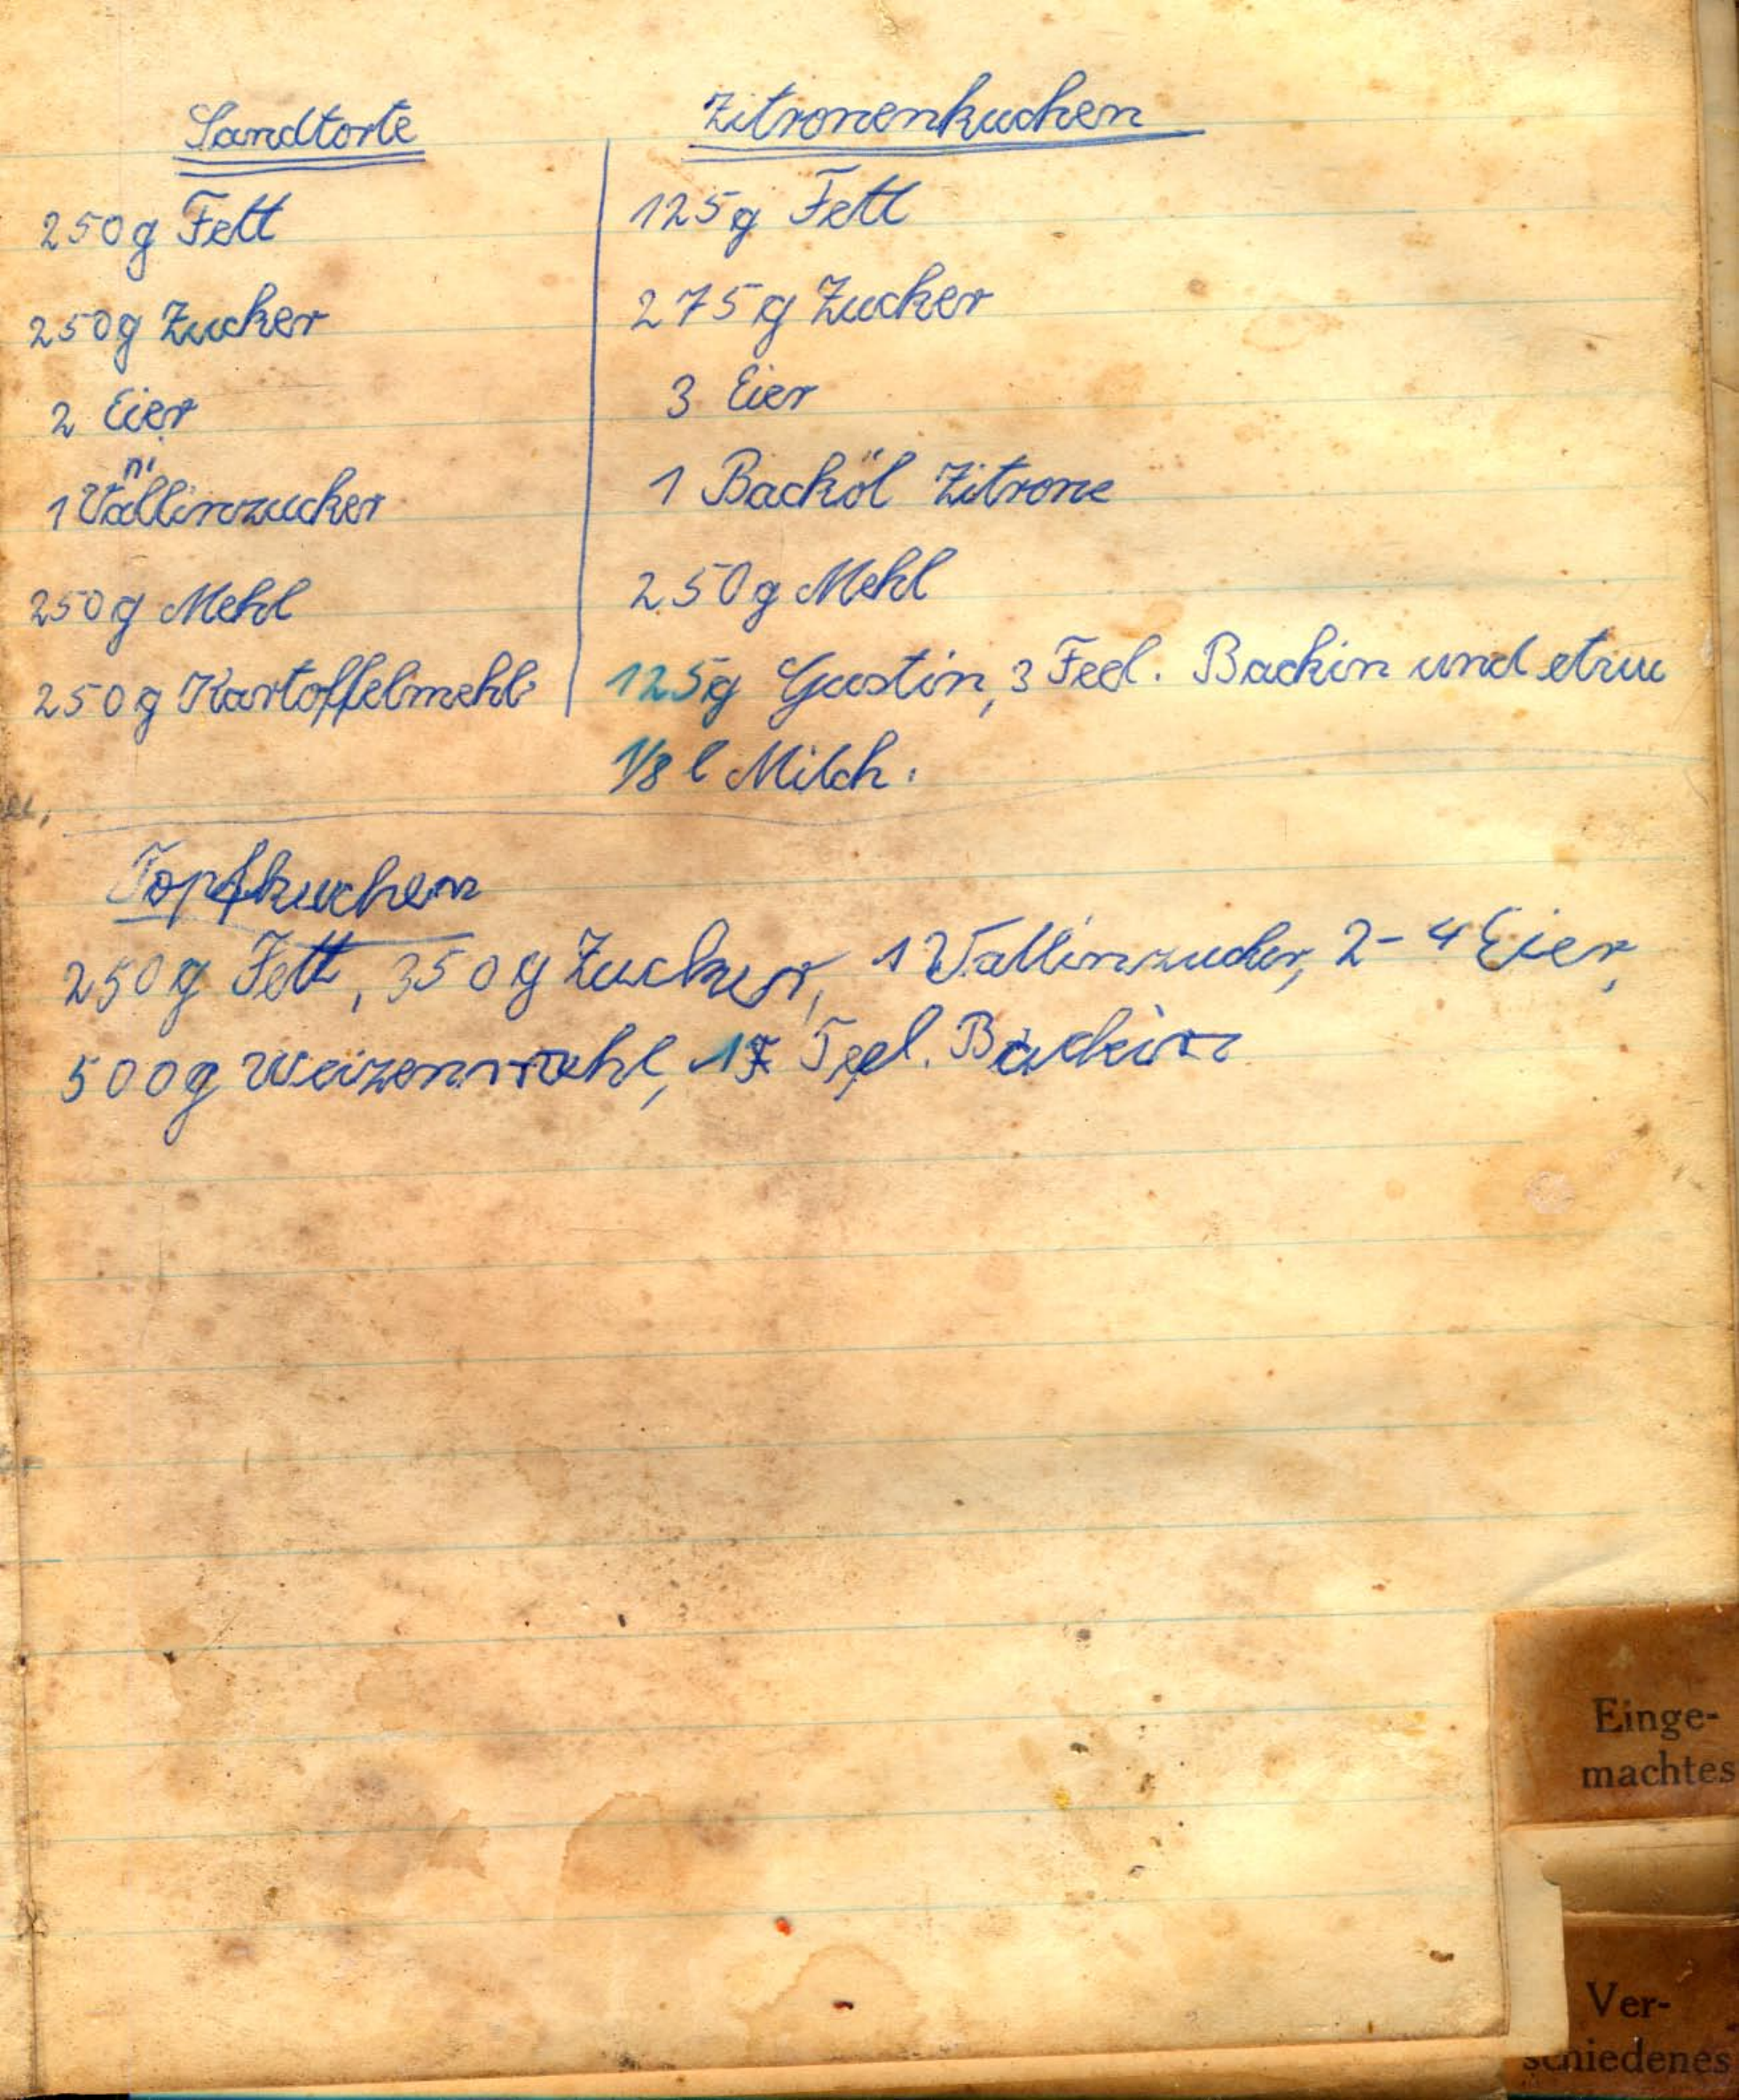 Sandtorte
250g Fett
250g Zucker
2 Eier
ni
1 Vallinzucker
250g Mehl
250g Kartoffelmehl
Zitronenkuchen
125g Fett
275g Zucker
3 Eier
1 Backöl Zitrone
250g Mehl
125g Gustin, 3 Teel. Backin und
1/8 l Milch.
Topfkuchen
250g Fett, 350g Zucker, 1 Vallinzucker, 2-4 Eier,
500g Weizenmehl, Teel. Backin
Einge-
machtes
Ver-
schiedenes